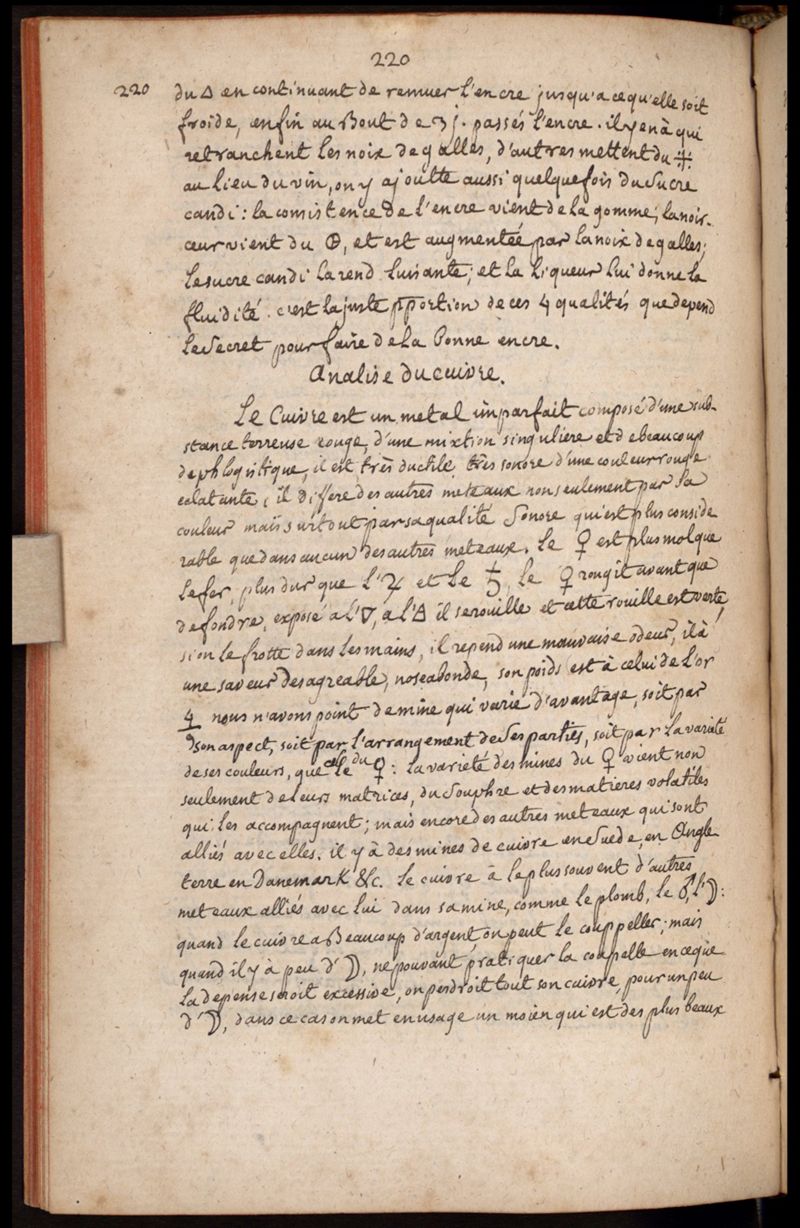 220
220 du 🜂 en continuant de remuer l'encre jusqu'a ce qu'elle soit
froide, enfin au Bout de 3 j. passés l'encre. il y en à qui
retranchent les noix de galles, d'autres mettent du 🜊
au lieu du vin, on y ajoutte aussi quelquefois du Sucre
candi: la consistence de l'encre vient de la gomme; la noir-
ceur vient du 🜨, et est augmentée par la noix de galles;
le sucre candi la rend luisante; et la liqueur lui donne la
fluidité. c'est la juste pportion de ces 4 qualités que depend
le Secret pour faire de la bonne encre.
Analise du cuivre.
Le Cuivre est un metal imparfait composé d'une sub-
stance terreuse rouge, d'une mixtion singuliere et de beaucoup
de phlogistique, il est très ductile, très sonore d'une couleur rouge
eclatante; il differe des autres metaux non seulement par sa
couleur mais surtout par sa qualité Sonore qui est plus conside
rable que dans aucun des autres metaux. Le ♀ est plus mol que
le fer, plus dur que l'♃ et le ♄, le ♀ rougit avant que
de fondre, exposé a l'🜄, à l'🜁 il se rouille et cette rouille est verte,
si on le frotte dans les mains, il repend une mauvaise odeur, il à
une saveur desagreable, noseabonde, son poids est à celui de l'or
4 nous n'avons point de mine qui varie d'avantage, soit par
son aspect, soit par l'arrangement de Ses parties, soit par la varieté
de ses couleurs, que celle du ♀: la varieté des mines du ♀ vient non
seulement de leurs matrices, du Souphre et des matieres volatiles
qui les accompagnent; mais encore des autres metaux qui sont
alliés avec elles. il y à des mines de cuivre en Suede, en Angle
terre en Danemark &c. Le cuivre à le plus souvent d'autres
metaux alliés avec lui dans sa mine, comme le plomb, le ♂, l'☽:
quand le cuivre a Beaucoup d'argent, on peut le couppeller; mais
quand il y à peu d'☽, ne pouvant pratiquer la coupelle en ce que
la depense seroit excessive, on perdroit tout son cuivre, pour un peu
d'☽, dans ce cas on met en usage un moien qui est des plus beaux